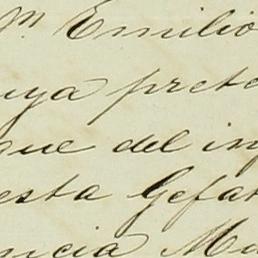 Dn. Emilio
uya prete
que del inf
esta Gefat
ncia Mu